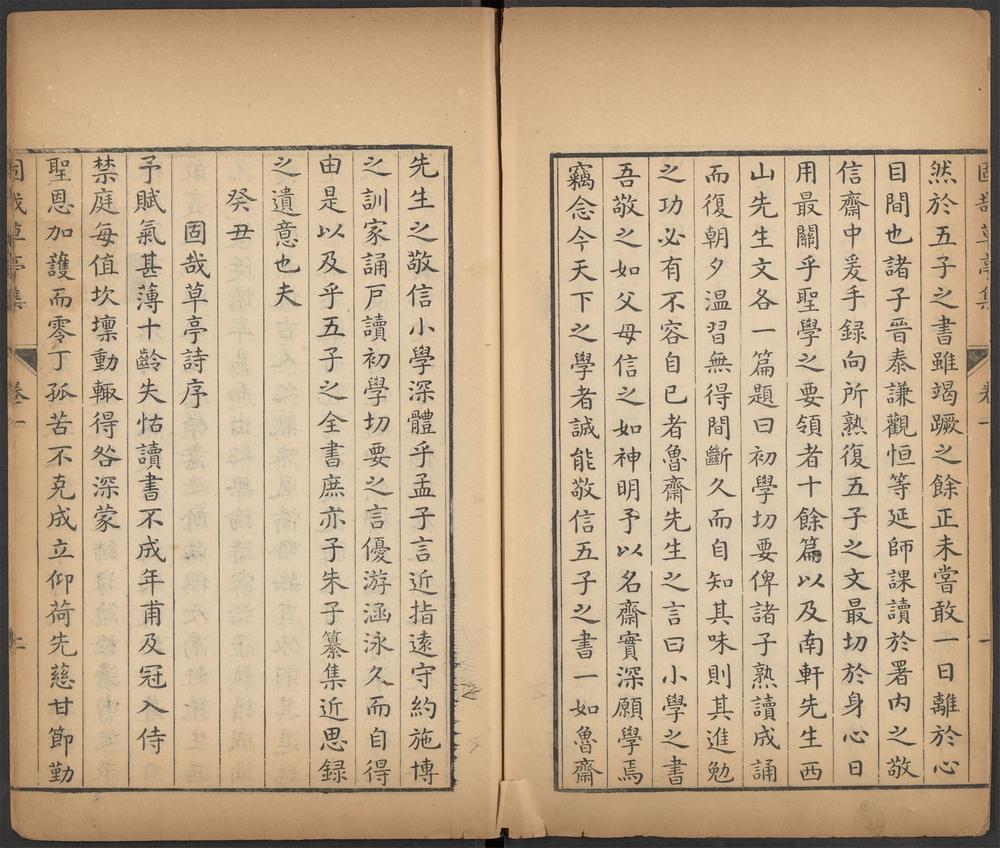 固哉草亭集
卷一
然於五子之書雖竭蹶之餘正未嘗敢一日離於心
目間也諸子晉泰謙觀恒等延師課讀於署內之敬
信齋中爰手錄向所熟復五子之文最切於身心日
用最關乎聖學之要領者十餘篇以及南軒先生西
山先生文各一篇題曰初學切要俾諸子熟讀成誦
而復朝夕溫習無得間斷久而自知其味則其進勉
之功必有不容自已者魯齋先生之言曰小學之書
吾敬之如父母信之如神明予以名齋實深願學焉
竊念今天下之學者誠能敬信五子之書一如魯齋
先生之敬信小學深體乎孟子言近指遠守約施博
之訓家誦戸讀初學切要之言優游涵泳久而自得
由是以及乎五子之全書庶亦子朱子纂集近思録
之遺意也夫
癸丑
固哉草亭詩序
予賦氣甚薄十齡失怙讀書不成年甫及冠入侍
禁庭每值坎壈動輒得咎深蒙
聖恩加護而零丁孤苦不克成立仰荷先慈甘節勤
固哉草亭集
卷一